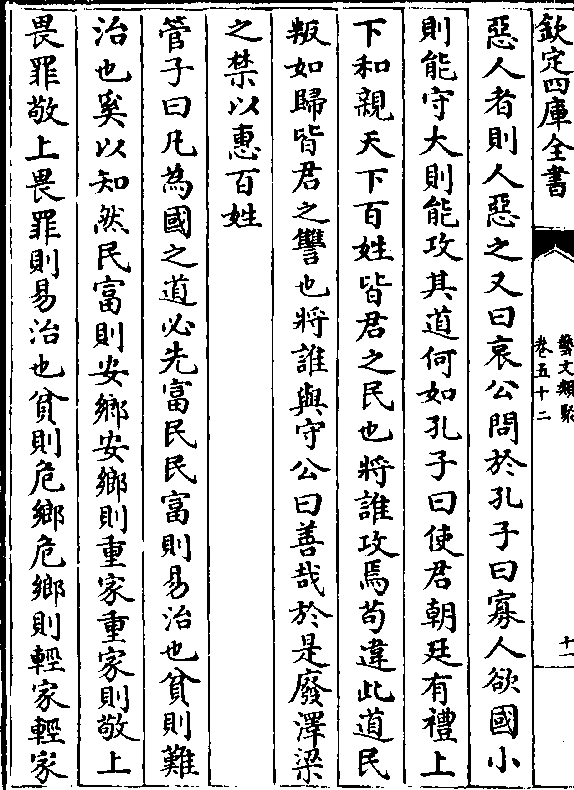 欽定四庫全書
藝文類聚
卷五十二
十一
惡人者則人惡之又曰哀公問於孔子曰寡人欲國小
則能守大則能攻其道何如孔子曰使君朝廷有禮上
下和親天下百姓皆君之民也將誰攻焉苟違此道民
叛如歸皆君之讐也將誰與守公曰善哉於是廢澤梁
之禁以惠百姓
管子曰凡為國之道必先富民民富則易治也貧則難
治也奚以知然民富則安鄉安鄉則重家重家則敬上
畏罪敬上畏罪則易治也貧則危鄉危鄉則輕家輕家